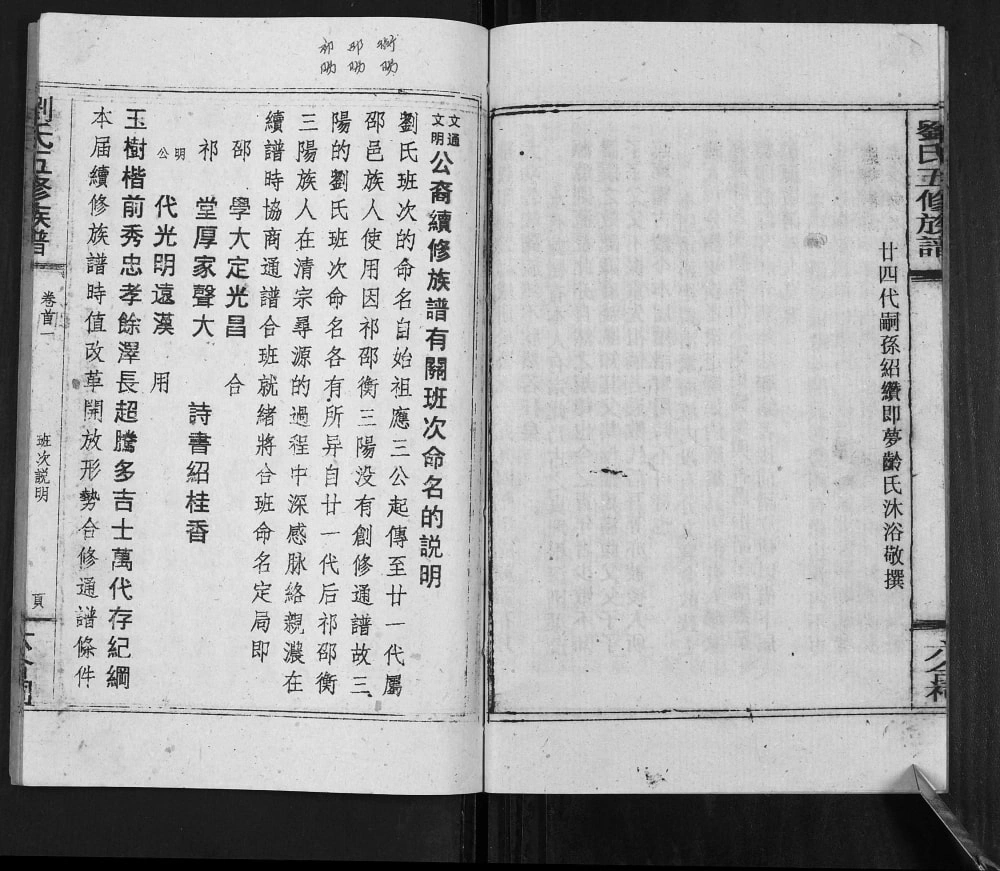 劉氏五修族譜
廿四代嗣孫紹纘即夢齡氏沐浴敬撰
衡陽
邵陽
祁陽
文通
文明
公裔續修族譜有關班次命名的説明
劉氏班次的命名自始祖應三公起傳至廿一代屬
邵邑族人使用因祁邵衡三陽没有創修通譜故三
陽的劉氏班次命名各有所异自廿一代后祁邵衡
三陽族人在清宗尋源的過程中深感脉絡親濃在
續譜時協商通譜合班就緒將合班命名定局即
邵 學大定光昌 合
祁 堂厚家聲大 詩書紹桂香
明公 代光明遠漢 用
玉樹楷前秀忠孝餘澤長超騰多吉士萬代存紀綱
本届續修族譜時值改革開放形勢合修通譜條件
劉氏五修族譜
卷首一
班次説明
頁